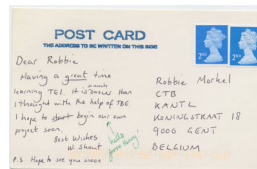 POST CARD
THE ADDRESS TO BE WRITTEN ON THIS SIDE
Dear Robbie
Having a great time
learning TEI. It is much
than
I thought with the help of TBE
I hope to start begin our own
project soon.
Best Wishes
P.S. Hope to see you soon
hello
Robbie Morkel
CTB
KANTL
KONINGSTRAAT 18
9000 GENT
BELGIUM
2ND
2ND